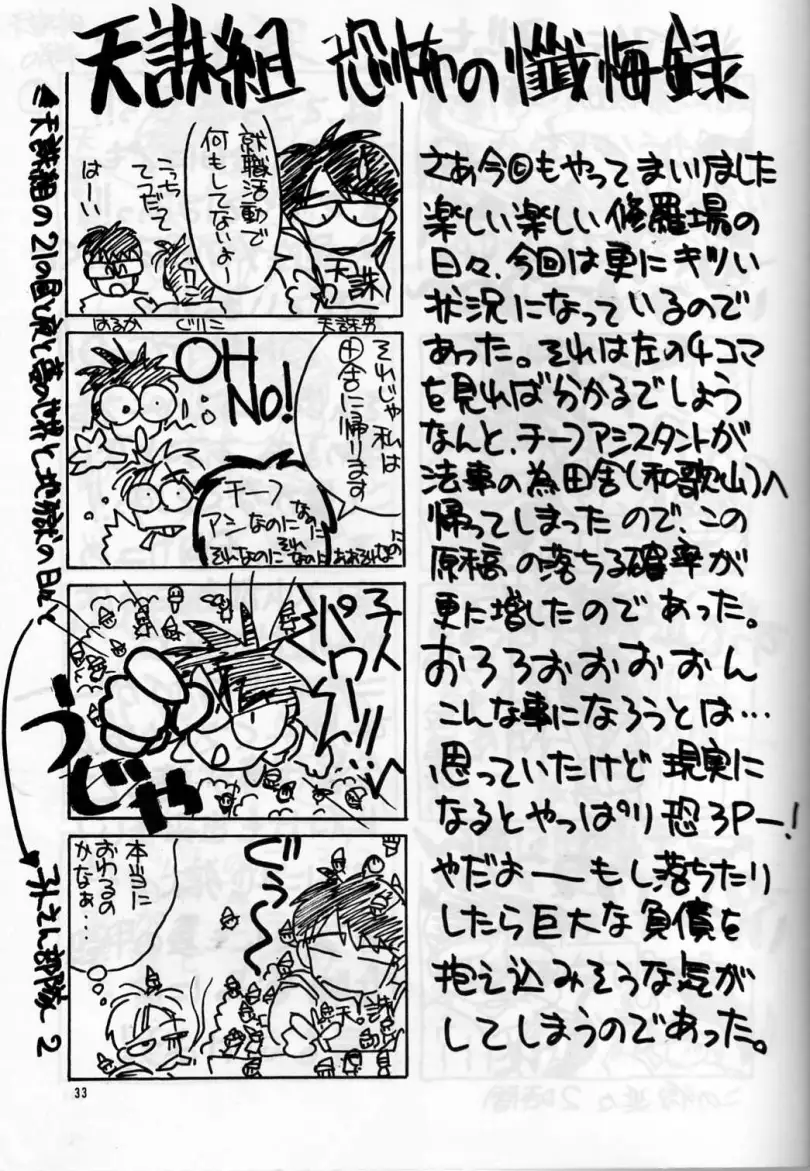 天誅組 恐怖の懺悔録
さあ今回もやってまいりました
楽しい楽しい修羅場の
日々、今回は更にキツい
状況になっているので
あった。それは左の4コマ
を見れば分かるでしょう
なんと、チーフアシスタントが
法事の為田舎(和歌山)へ
帰ってしまったので、この
原稿の落ちる確率が
更に増したのであった。
おろろおおおおん
こんな事になろうとは…
思っていたけど現実に
なるとやっぱり恐ろP〜!
やだよ――もし落ちたり
したら巨大な負債を
抱え込みそうな気が
してしまうのであった。
就職活動で
何もしてないよー
こっち
てつだって
はーい
天誅
はるか
ぐりこ
天誅男
それじゃ私は
田舎に帰ります
OH
NO!
チーフ
アシなのに
なのに
それなのに
それなのに
子人
パワー!!
うじゃ
ぐぅ〜〜
本当に
おわるの
かなぁ…
天誅組の21の
地獄の日々
2
33